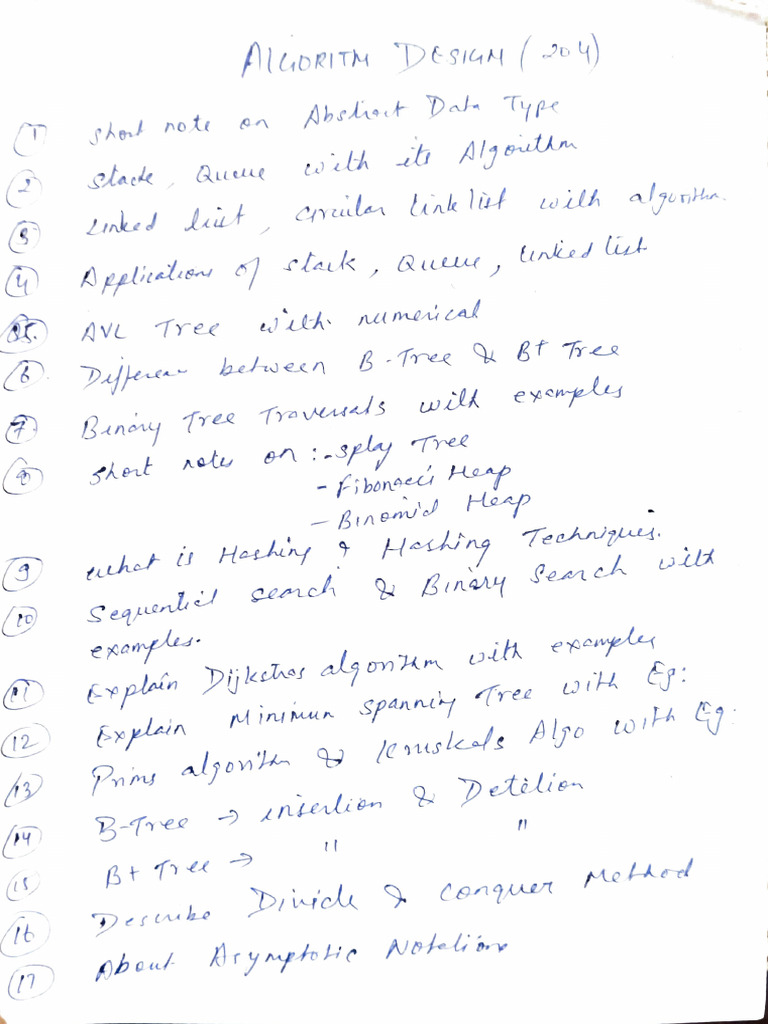 ALGORITM DESIGN (204)
1 short note on Abstract Data Type
2 stack, Queue with its Algorithm
3 Linked list, circular linklist with algorithm.
4 Applications of stack, Queue, linked list
5. AVL Tree with numerical
6. Differen between B-Tree & B+ Tree
7. Binary Tree Traversals with examples
8 short notes on :- splay Tree
- Fibonacci Heap
- Binomial Heap
9 what is Hashing & Hashing Techniques.
10 Sequential search & Binary Search with
examples.
11 Explain Dijkstras algorithm with examples
12 Explain Minimun spanning Tree with Eg:
13 Prims algorithm & kruskals Algo with Eg:
14 B-Tree → insertion & Detelion
15 B+ Tree → " "
16 Describe Divide & conquer Method
17 About Asymptotic Notations